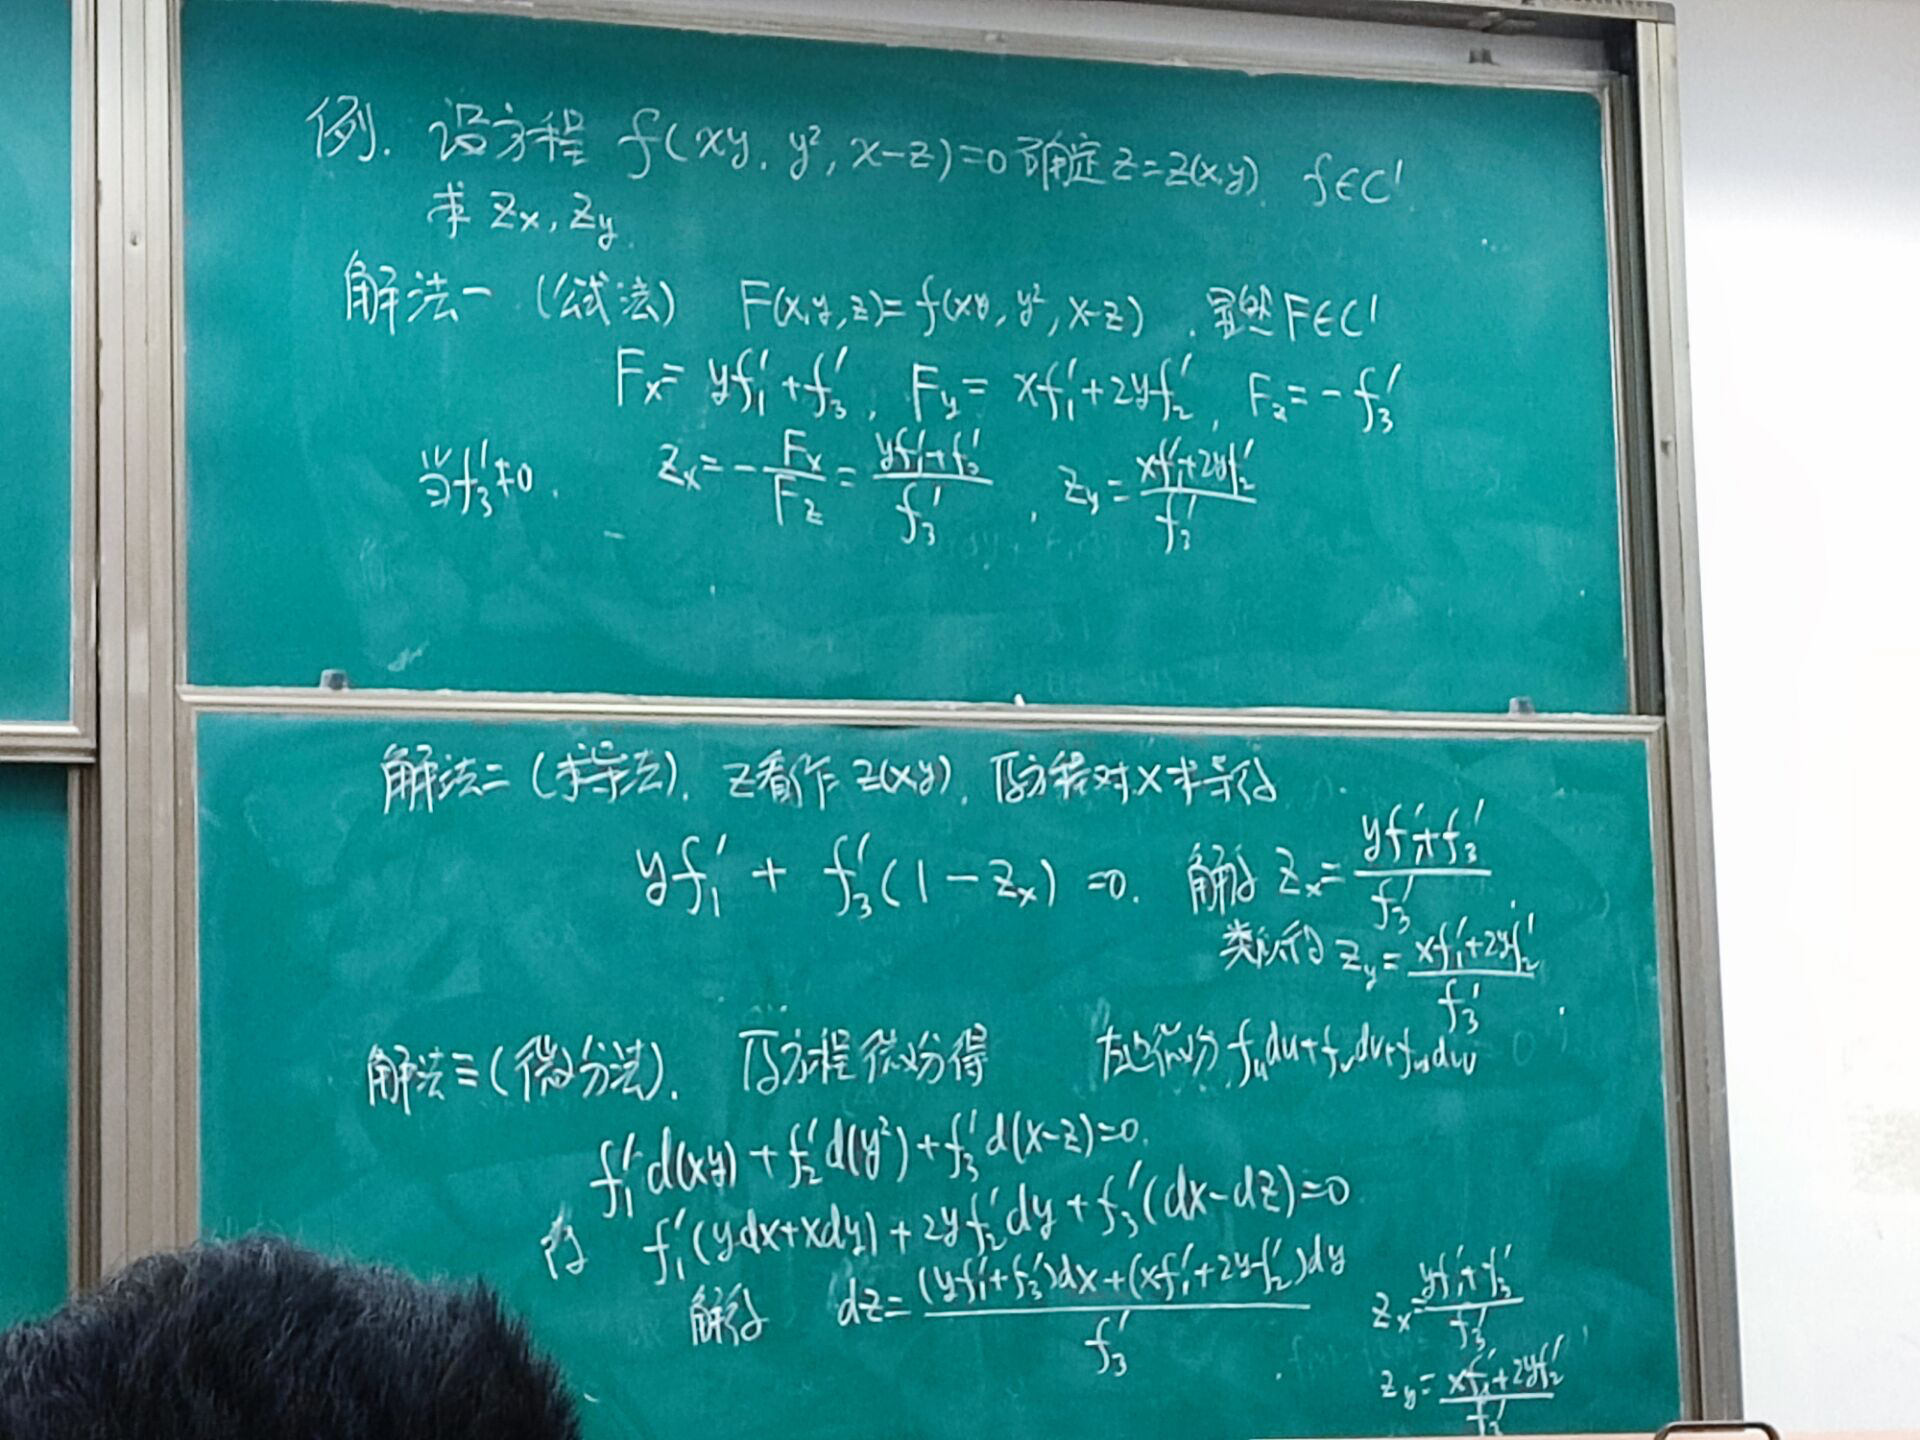 例. 设方程 f(xy, y², x-z)=0 确定 z=z(x,y), f∈C'.
求 Zx, Zy.
解法一 (公式法) F(x,y,z)=f(xy, y², x-z). 显然 F∈C'
Fx= yf₁'+f₃', Fy= xf₁'+2yf₂', Fz= -f₃'
当f₃'≠0. Zx= -Fx/Fz = (yf₁'+f₃')/f₃', Zy= (xf₁'+2yf₂')/f₃'
解法二 (求导法). z看作 z(x,y). 原方程对x求导得
yf₁' + f₃'(1-Zx) =0. 解得 Zx= (yf₁'+f₃')/f₃'
类似得 Zy= (xf₁'+2yf₂')/f₃'
解法三 (微分法). 原方程微分得 左边微分 fᵤdu+fᵥdv+f_w dw
f₁'d(xy)+f₂'d(y²)+f₃'d(x-z)=0.
f₁'(ydx+xdy)+2yf₂'dy+f₃'(dx-dz)=0
解得 dz= ((yf₁'+f₃')dx+(xf₁'+2yf₂')dy)/f₃'
Zx= (yf₁'+f₃')/f₃'
Zy= (xf₁'+2yf₂')/f₃'